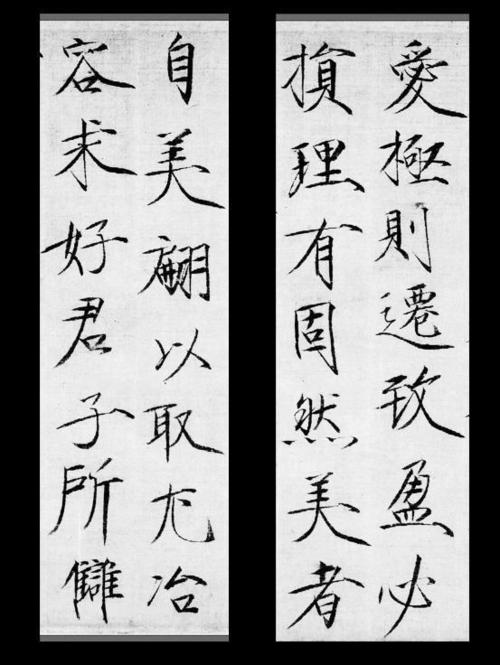 愛極則遷致盈必
損理有固然美者
自美翩以取尤冶
容求好君子所讎